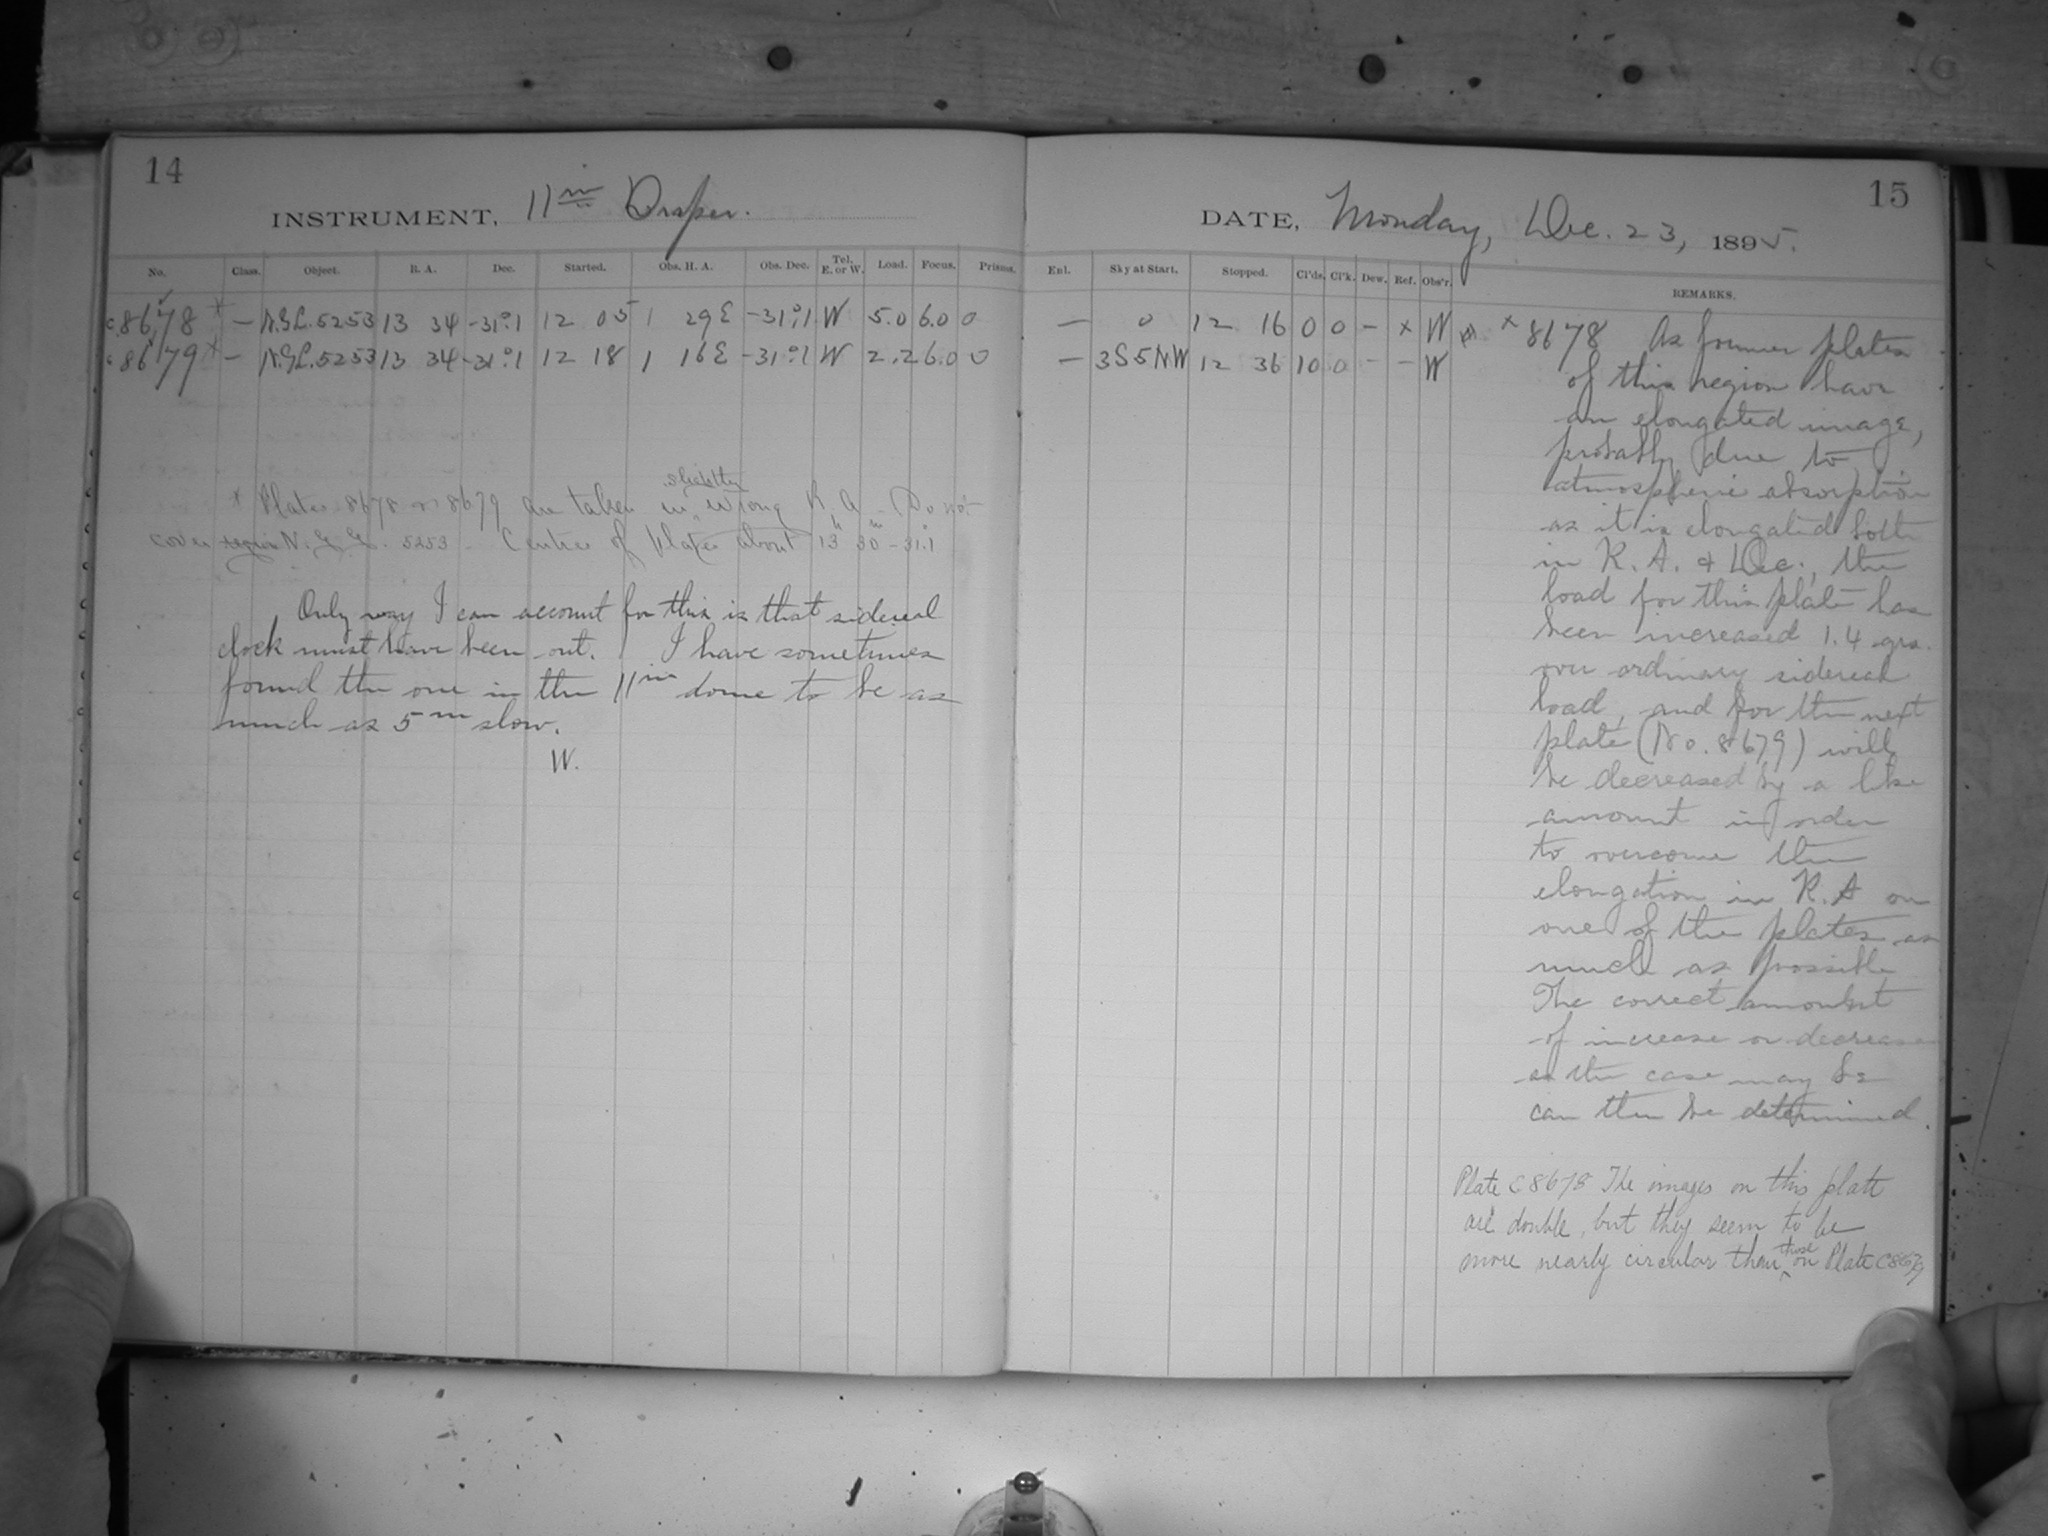 14
INSTRUMENT, 11 in Draper.
No. Class. Object. R. A. Dec. Started. Obs. H. A. Obs. Dec. Tel. E. or W. Load. Focus. Prisms.
c8678 x — N.G.C. 5253 13 34 -31°.1 12 05 1 29 E -31°.1 W 5.0 6.0 0
c8679 x — N.G.C. 5253 13 34 -31°.1 12 18 1 16 E -31°.1 W 2.2 6.0 0
slightly
x Plates 8678 & 8679 are taken in wrong R. A. Do not
cover region N. G. C. 5253. Centre of plates about 13h 30m -31°.1
Only way I can account for this is that sidereal
clock must have been out. I have sometimes
found the one in the 11 in dome to be as
much as 5 m slow.
W.
15
DATE, Monday, Dec. 23, 1895.
Enl. Sky at Start. Stopped. Cl'ds. Cl'k. Dew. Ref. Obs'r. REMARKS.
— 0 12 16 0 0 - x W
— 3S5NW 12 36 10 0 - - W
x 8678 As former plates
of this region have
an elongated image,
probably due to
atmospheric absorption
as it is elongated both
in R. A. & Dec., the
load for this plate has
been increased 1.4 grs.
over ordinary sidereal
load, and for the next
plate (No. 8679) will
be decreased by a like
amount in order
to overcome the
elongation in R. A on
one of the plates as
much as possible
The correct amount
of increase or decrease
as the case may be
can then be determined.
Plate C8678 The images on this plate
are double, but they seem to be
more nearly circular than those on Plate C8679